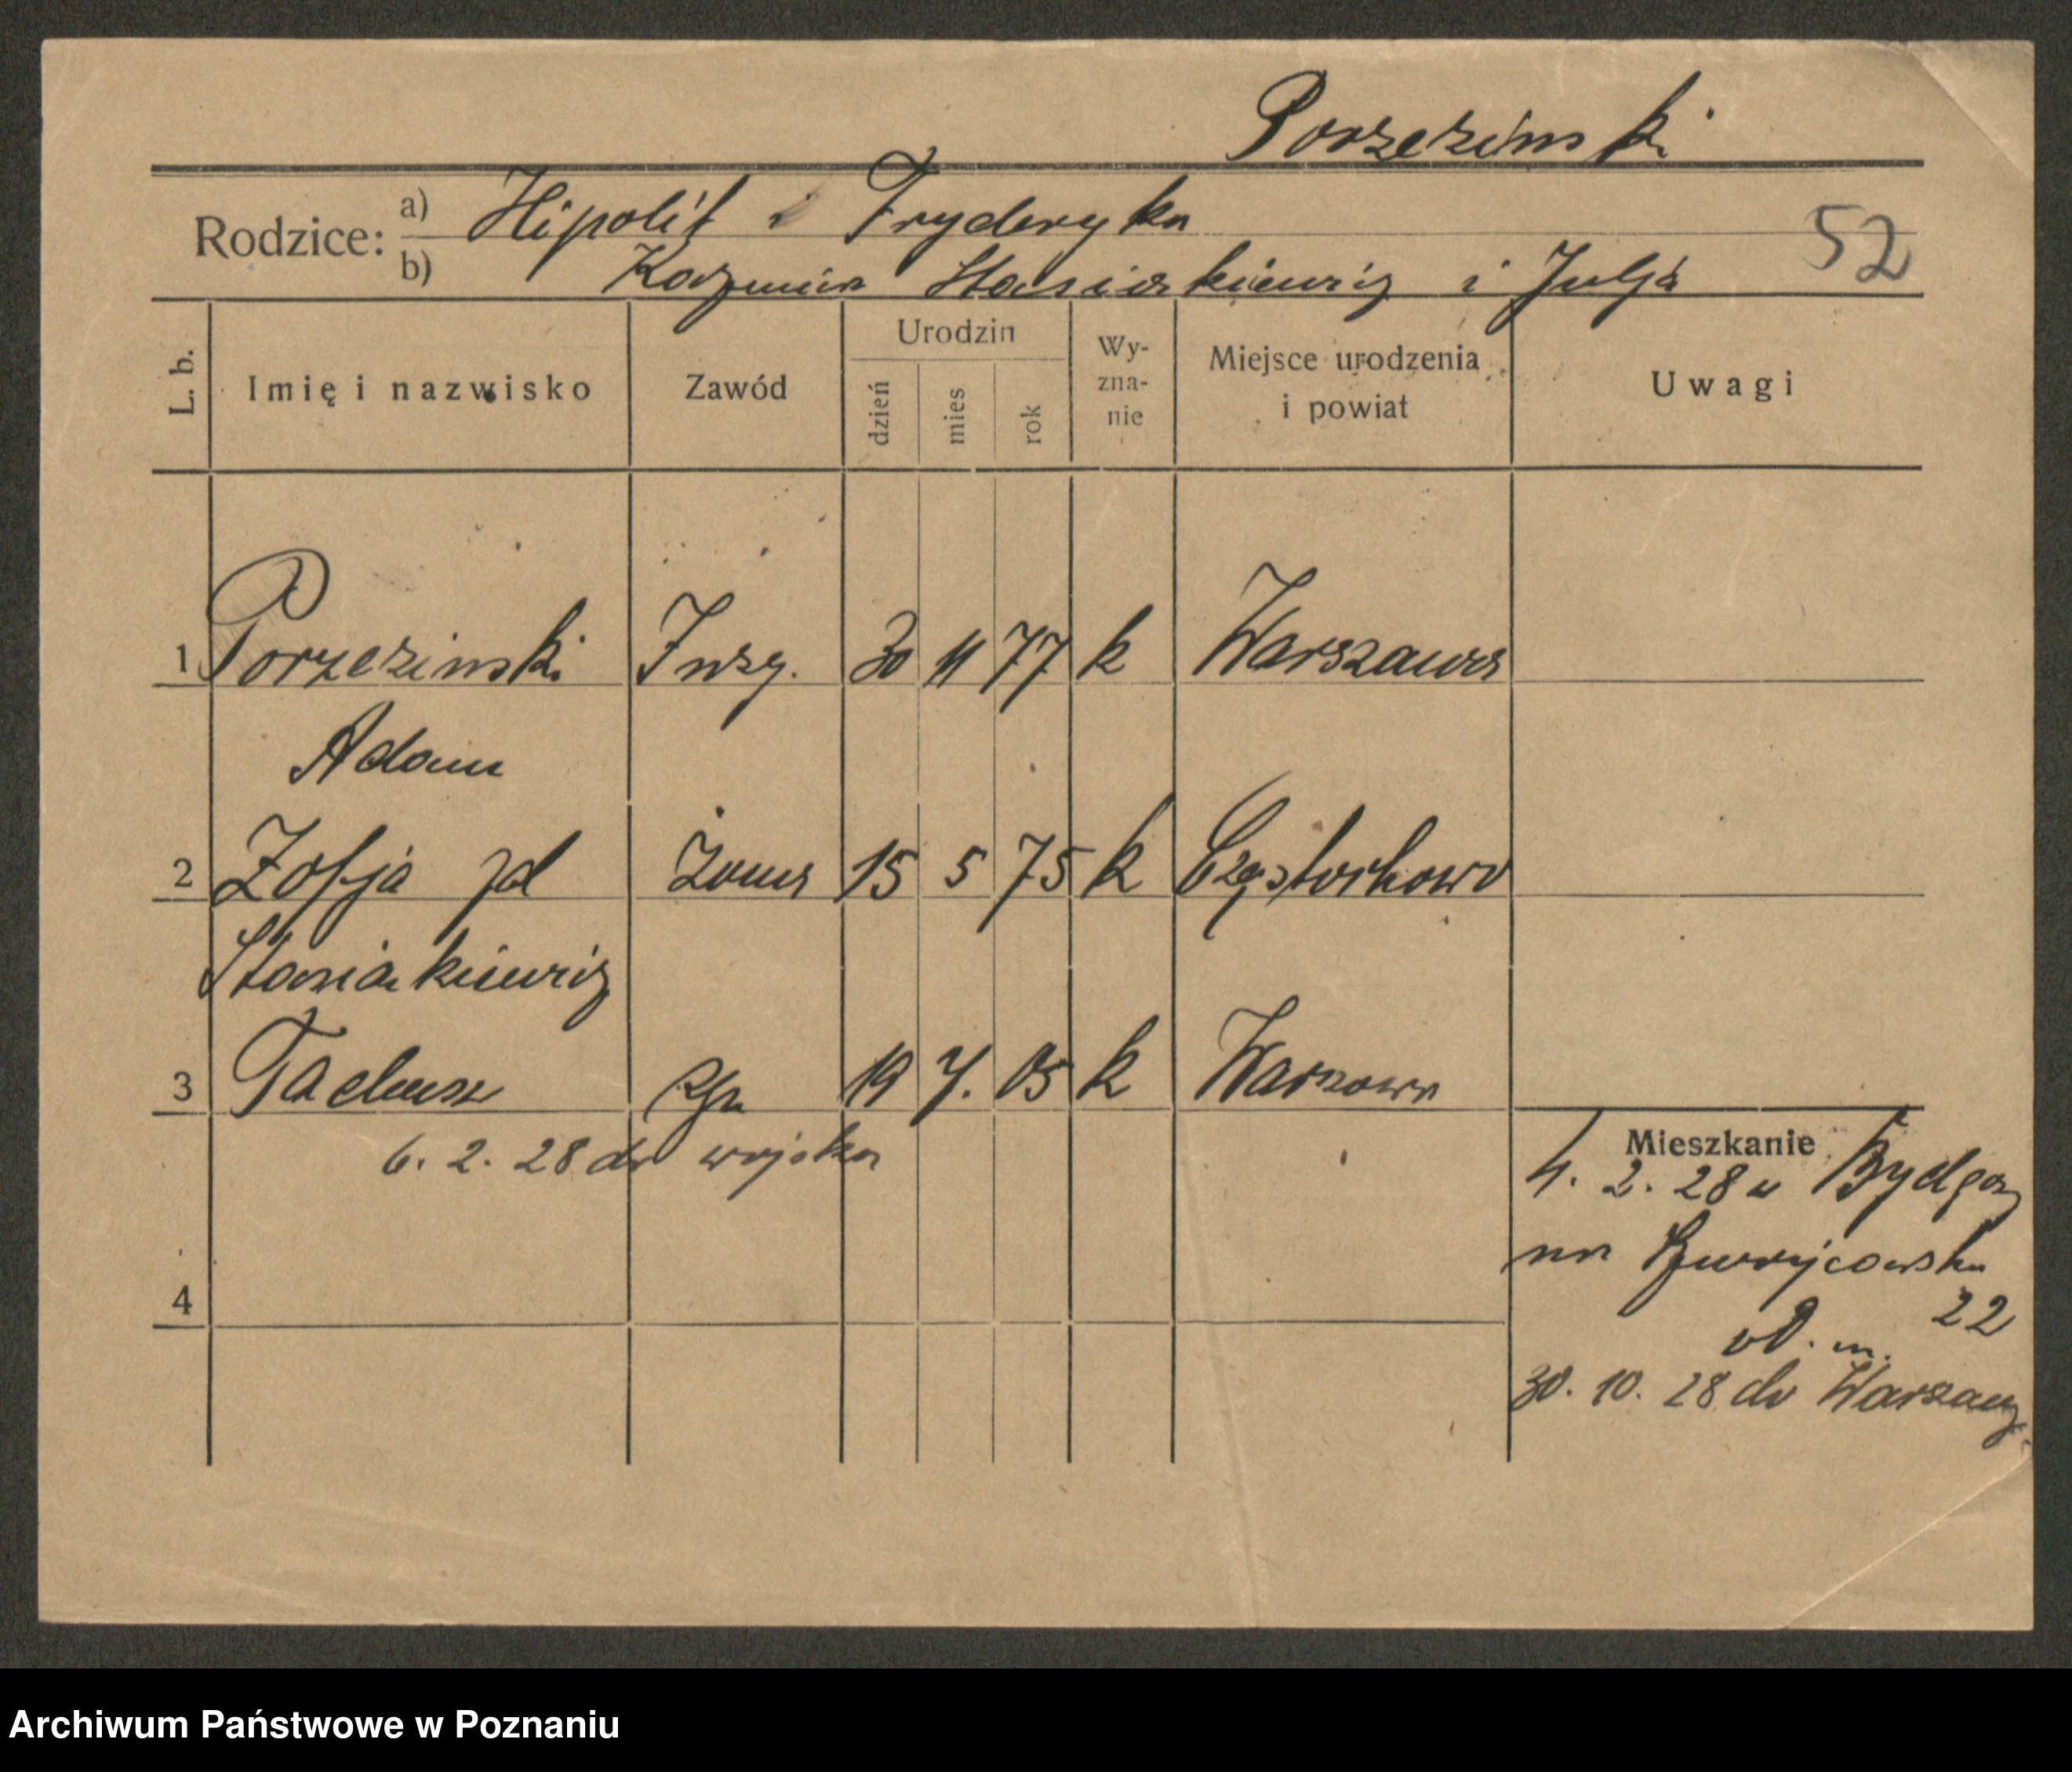 Porzezinski
Rodzice: a) Hipolit i Fryderyka
b) Kazimierz Staniakiewicz i Julja
52
L. b. Imię i nazwisko Zawód Urodzin dzień mies rok Wy-zna-nie Miejsce urodzenia i powiat Uwagi
1 Porzezinski Inży. 30 11 77 k Warszawa
Adam
2 Zofja zd Żona 15 5 75 k Częstochowa
Staniakiewicz
3 Tadeusz 19 7. 05 k Warszawa
6. 2. 28 do wojska
Mieszkanie
4. 2. 28 w Bydgosz
22
4
30. 10. 28 do Warszawy
Archiwum Państwowe w Poznaniu